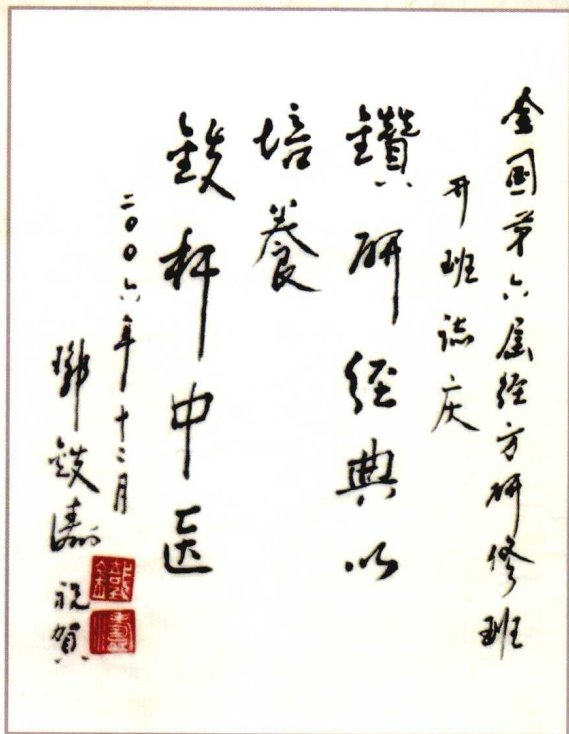 全国第六届经方研修班
开班誌庆
鑽研经典以
培養
鉄杆中医
二〇〇六年十二月
鄧鉄涛祝賀